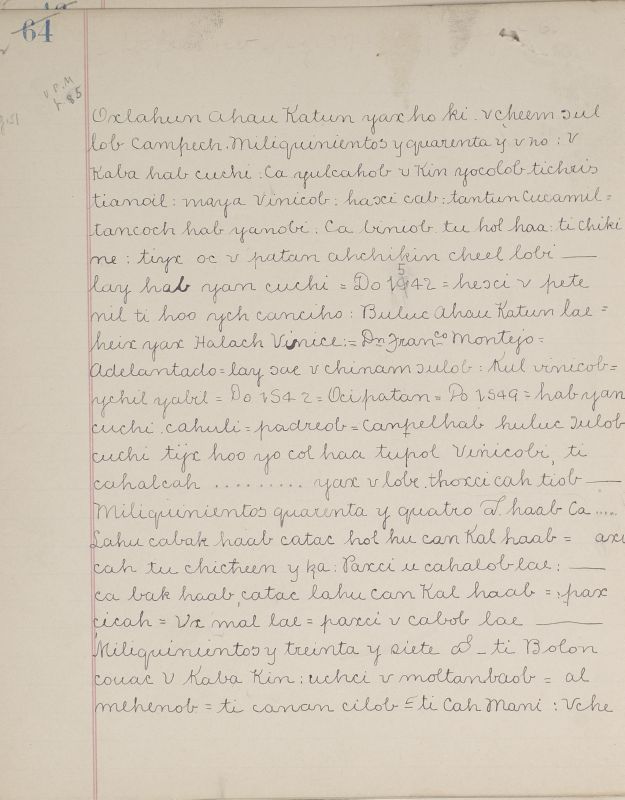 64
V.P.M
p. 85
Oxlahun ahau Katun yax ho ki. v cheem ɔul
lob Campech. Miliquinientos y quarenta y vno : v
Kaba hab cuchi : Ca yulcahob v Kin yocolob tichris
tianoil : maya Vinicob : haxci cab : tantun Cucamil =
tancoch hab yanobi : Ca binicob. tu hol haa : ti chiki
me : tiyx oc v patan ahchikin cheel lobi —
lay hab yan cuchi = Do 1542 = hexci v pete
nil ti hoo ych canciho : Buluc Ahau Katun lae =
heix yax Halach Vinice := Dn Franco Montejo =
Adelantado = lay ɔae v chinam ɔulob : Kul vinicob =
ychil yabil = Do 1542 = Ocipatan = Do 1549 = hab yan
cuchi. cahuli = padreob = canpelhab huluc ɔulob
cuchi tiyx hoo yo col haa tupol Vinicobi, ti
cahalcah ......... yax v lobe. thoxci cah tiob —
Miliquinientos quarenta y quatro ao. haab Ca .....
Lahu cabak haab catac hol hu can Kal haab = axi
cah tu chicheen y ɔa : Paxci u cahalob lae : —
ca bak haab catac lahu can Kal haab = : pax
cicah = Vx mal lae = paxci v cabob lae —
Miliquinientos y treinta y siete ao – ti Bolon
couac v Kaba Kin : uchci v moltanbaob = al
mehenob = ti canan cilob = ti Cah Mani : Vche